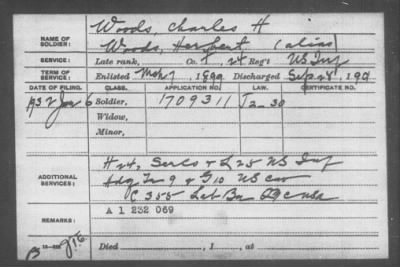 Woods, Charles H
NAME OF SOLDIER: Woods, Herbert (alias)
SERVICE: Late rank, Co. I, 24 Reg't US Inf
TERM OF SERVICE: Enlisted Mch 7, 1899 Discharged Sep 28, 190
DATE OF FILING. CLASS. APPLICATION NO. LAW. CERTIFICATE NO.
1932 Jan 6 Soldier, 1709311 J 2-30
Widow,
Minor,
ADDITIONAL SERVICES: H 24, & L 25 US Inf
Hdq Tr 9 & G 10 US Cav
C 355 Lab Bn QMC USA
REMARKS: A 1 232 069
Died , 1 , at